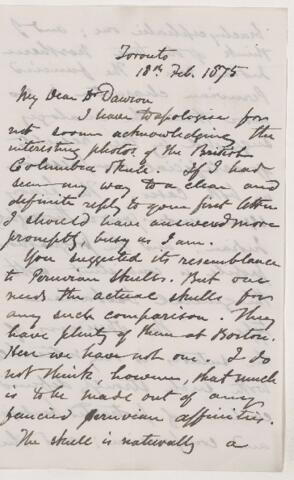 Toronto
18th Feb. 1875
My Dear Dr Dawson
I have to apologise for
not sooner acknowledging the
interesting photos of the British
Columbia Skull. If I had
seen my way to a clear and
definite reply to your first letter
I should have answered more
promptly, busy as I am.
You suggested its resemblance
to Peruvian Skulls. But one
needs the actual skulls for
any such comparison. They
have plenty of them at Boston.
Here we have not one. I do
not think, however, that much
is to be made out of any
fancied peruvian affinities.
The skull is naturally a